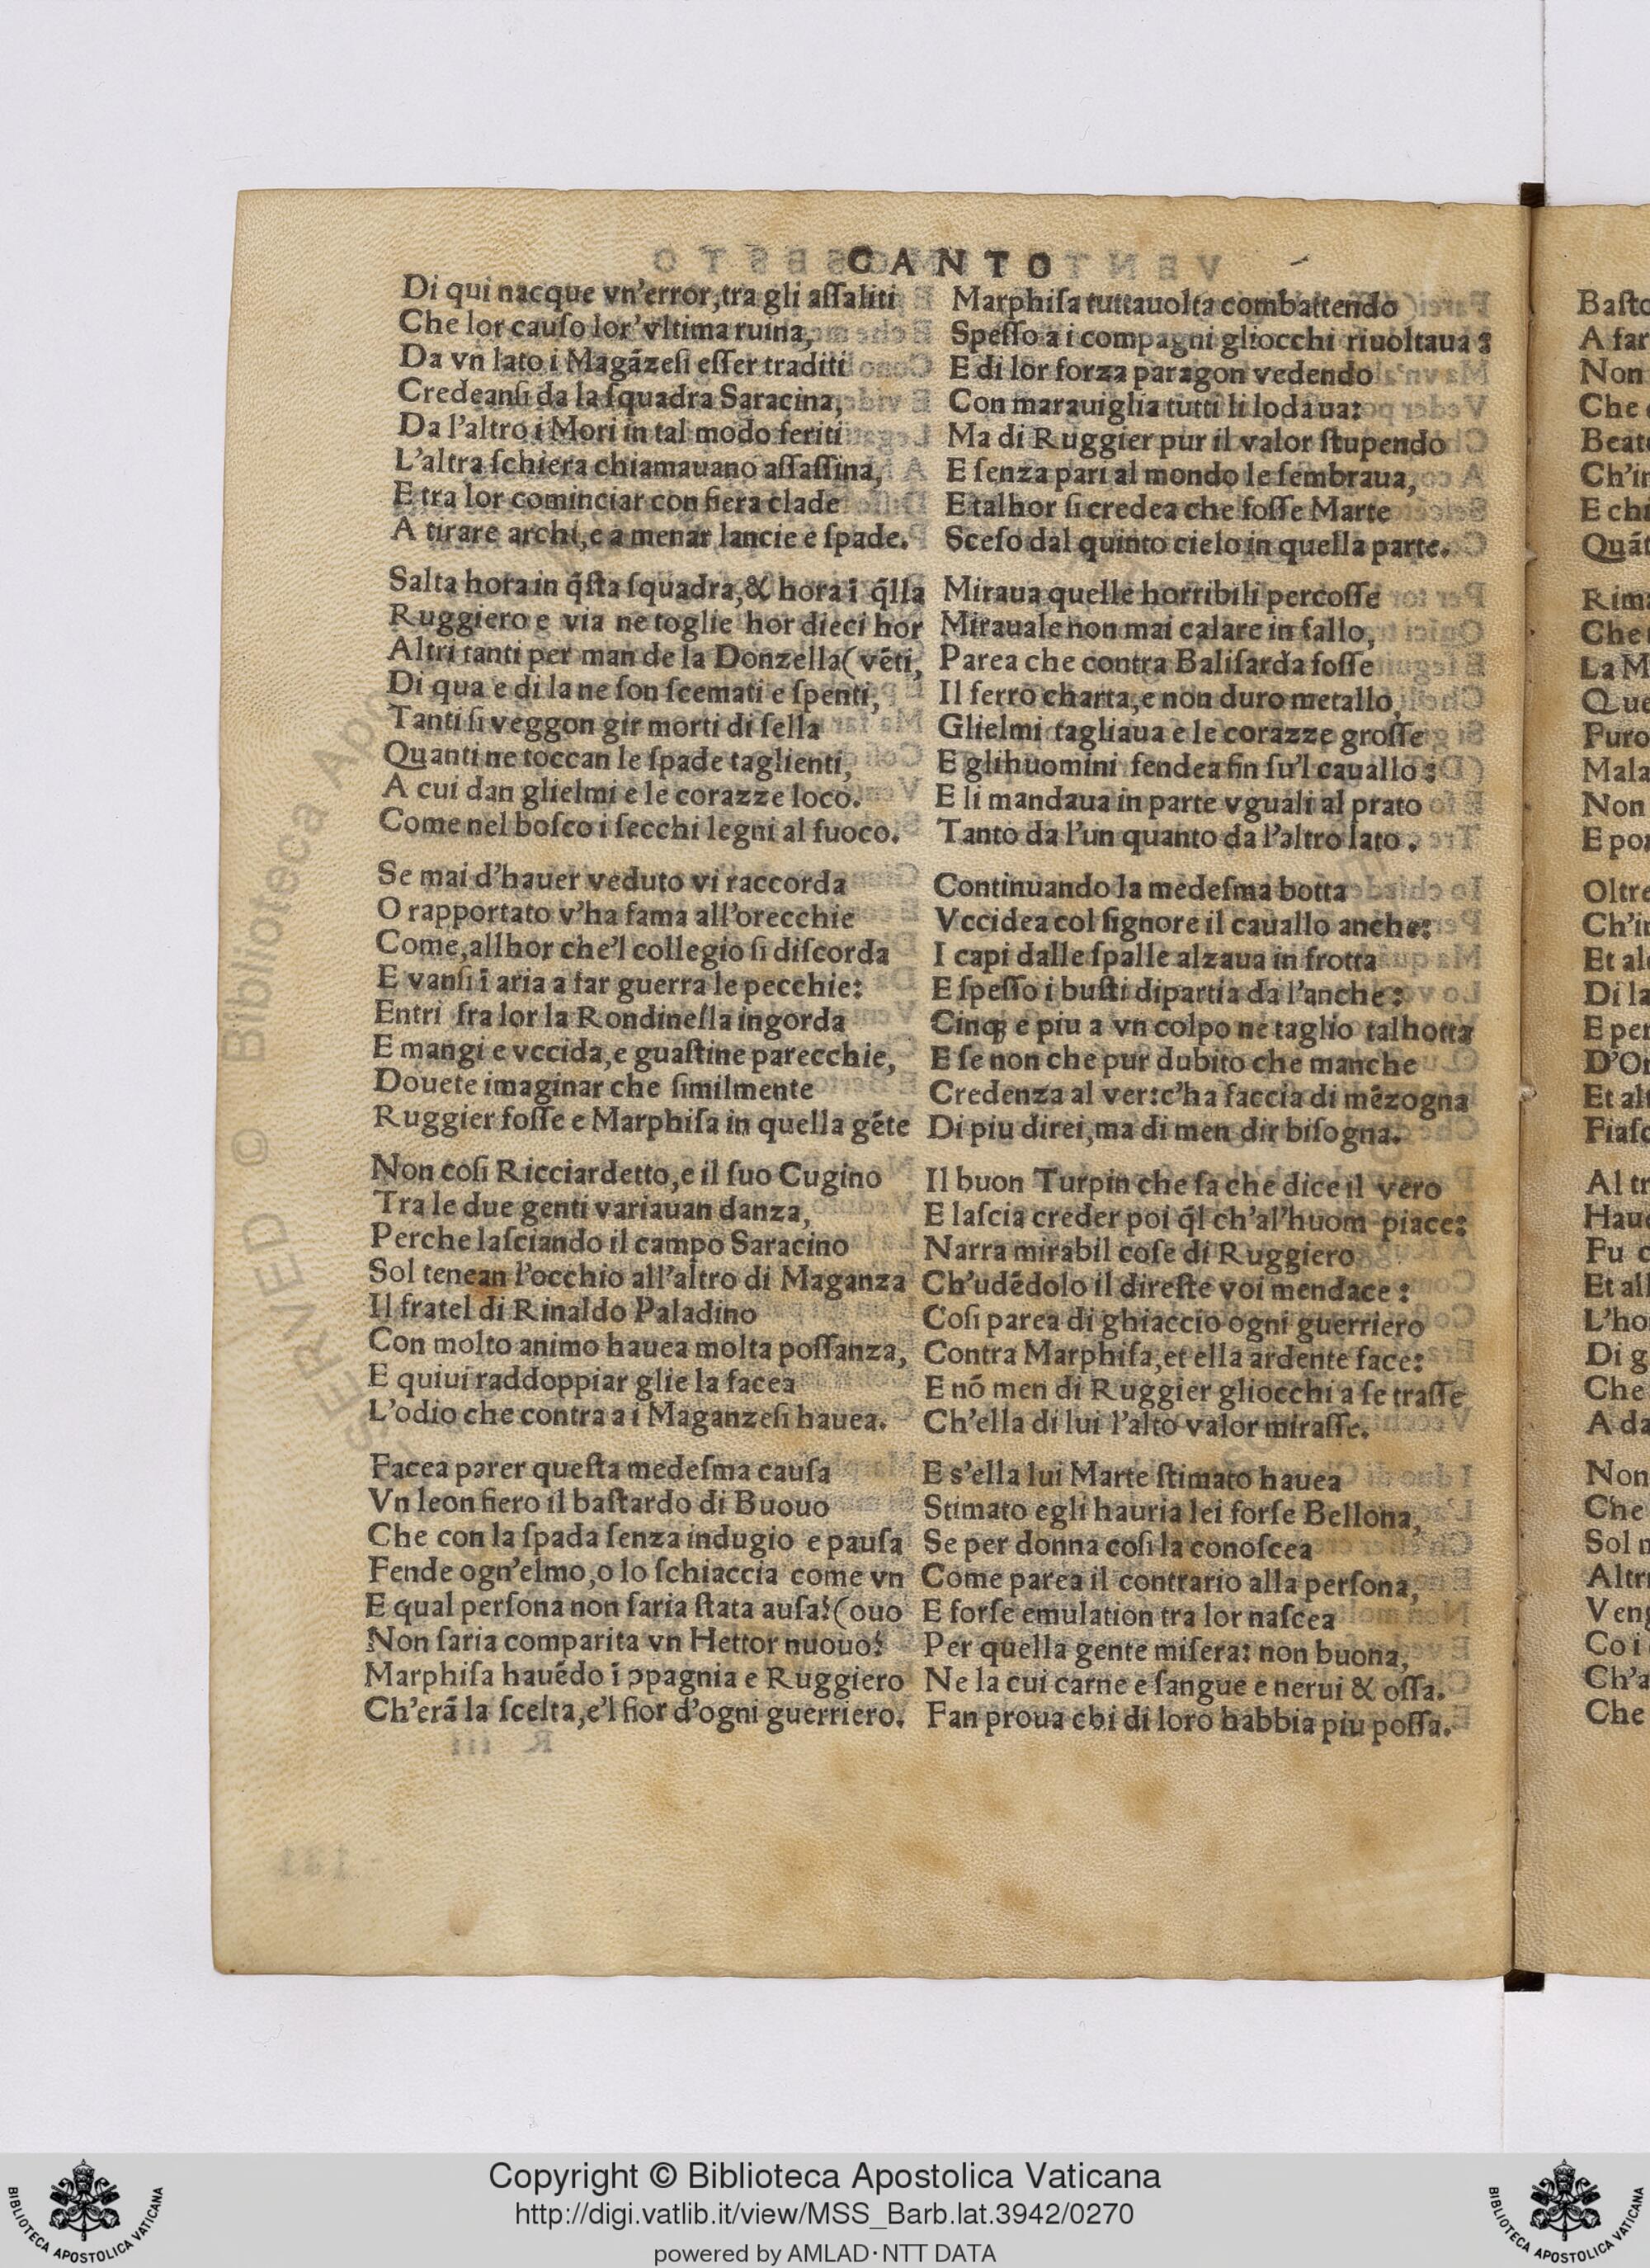 CANTO
Di qui nacque vn'error,tra gli aſſaliti
Che lor cauſo lor'vltima ruina,
Da vn lato i Magãzeſi eſſer traditi
Credeanſi da la ſquadra Saracina,
Da l'altro i Mori in tal modo feriti
L'altra ſchiera chiamauano aſſaſſina,
E tra lor cominciar con fiera clade
A tirare archi,e a menar lancie e ſpade.
Salta hora in q̃ſta ſquadra,& hora ĩ q̃lla
Ruggiero e via ne toglie hor dieci hor
Altri tanti per man de la Donzella(vẽti,
Di qua e di la ne ſon ſcemati e ſpenti,
Tanti ſi veggon gir morti di ſella
Quanti ne toccan le ſpade taglienti,
A cui dan glielmi e le corazze loco.
Come nel boſco i ſecchi legni al fuoco.
Se mai d'hauer veduto vi raccorda
O rapportato v'ha fama all'orecchie
Come,allhor che'l collegio ſi diſcorda
E vanſi ĩ aria a far guerra le pecchie:
Entri fra lor la Rondinella ingorda
E mangi e vccida,e guaſtine parecchie,
Douete imaginar che ſimilmente
Ruggier foſſe e Marphiſa in quella gẽte
Non coſi Ricciardetto,e il ſuo Cugino
Tra le due genti variauan danza,
Perche laſciando il campo Saracino
Sol tenean l'occhio all'altro di Maganza
Il fratel di Rinaldo Paladino
Con molto animo hauea molta poſſanza,
E quiui raddoppiar glie la facea
L'odio che contra a i Maganzeſi hauea.
Facea parer queſta medeſma cauſa
Vn leon fiero il baſtardo di Buouo
Che con la ſpada ſenza indugio e pauſa
Fende ogn'elmo,o lo ſchiaccia come vn
E qual perſona non ſaria ſtata auſa?(ouo
Non ſaria comparita vn Hettor nuouo?
Marphiſa hauẽdo ĩ ↄpagnia e Ruggiero
Ch'erã la ſcelta,e'l fior d'ogni guerriero.
Marphiſa tuttauolta combattendo
Speſſo a i compagni gliocchi riuoltaua:
E di lor forza paragon vedendo
Con marauiglia tutti li lodaua:
Ma di Ruggier pur il valor ſtupendo
E ſenza pari al mondo le ſembraua,
E talhor ſi credea che foſſe Marte
Sceſo dal quinto cielo in quella parte.
Miraua quelle horribili percoſſe
Mirauale non mai calare in fallo,
Parea che contra Baliſarda foſſe
Il ferro charta,e non duro metallo,
Glielmi tagliaua e le corazze groſſe
E glihuomini fendea fin ſu'l cauallo:
E li mandaua in parte vguali al prato
Tanto da l'un quanto da l'altro lato.
Continuando la medeſma botta
Vccidea col ſignore il cauallo anche:
I capi dalle ſpalle alzaua in frotta
E ſpeſſo i buſti dipartia da l'anche:
Cinqꝫ e piu a vn colpo ne taglio talhotta
E ſe non che pur dubito che manche
Credenza al ver:c'ha faccia di mẽzogna
Di piu direi,ma di men dir biſogna.
Il buon Turpin che ſa che dice il vero
E laſcia creder poi q̃l ch'al'huom piace:
Narra mirabil coſe di Ruggiero
Ch'udẽdolo il direſte voi mendace:
Coſi parea di ghiaccio ogni guerriero
Contra Marphiſa,et ella ardente face:
E nõ men di Ruggier gliocchi a ſe traſſe
Ch'ella di lui l'alto valor miraſſe.
E s'ella lui Marte ſtimato hauea
Stimato egli hauria lei forſe Bellona,
Se per donna coſi la conoſcea
Come parea il contrario alla perſona,
E forſe emulation tra lor naſcea
Per quella gente miſera: non buona,
Ne la cui carne e ſangue e nerui & oſſa.
Fan proua chi di loro habbia piu poſſa.
Baſto
A far
Non
Che
Beat
Ch'in
E chi
Quãt
Rima
Che
La M
Que
Puro
Mala
Non
E por
Oltre
Ch'in
Et al
Di la
E per
D'Or
Et alt
Fiaſc
Al tr
Haue
Fu c
Et all
L'ho
Di g
Che
A da
Non
Che
Sol n
Altri
Veng
Co i
Ch'a
Che
SERVED © Biblioteca Apo
Copyright © Biblioteca Apostolica Vaticana
http://digi.vatlib.it/view/MSS_Barb.lat.3942/0270
powered by AMLAD·NTT DATA
BIBLIOTECA APOSTOLICA VATICANA
BIBLIOTECA APOSTOLICA VATICANA